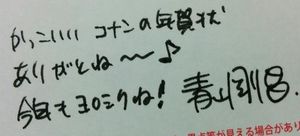 かっこいい コナンの年賀状
ありがとね〜♪
今年もヨロシクね! 青山剛昌
点等が見える場合があり